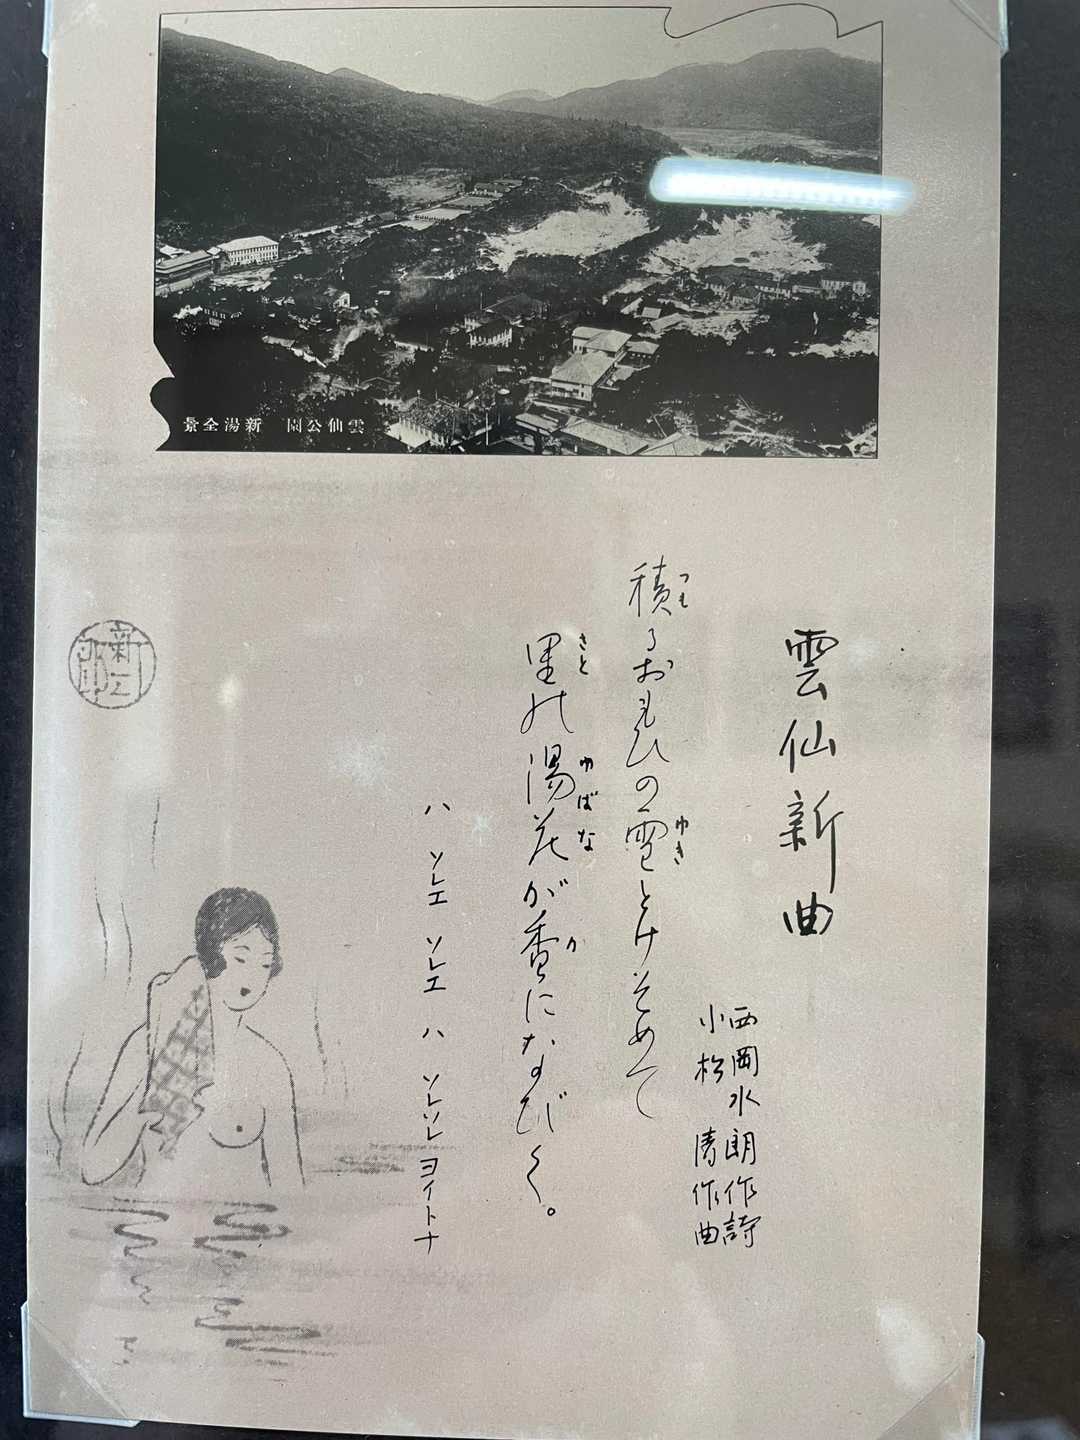 雲仙公園　新湯全景
雲仙新曲
西岡水朗作詩
小松清作曲
積るおもひの雪とけそめて
つも
ゆき
里の湯花が香になびく。
さと
ゆばな
か
ハ ソレエ ソレエ ハ ソレソレ ヨイトナ